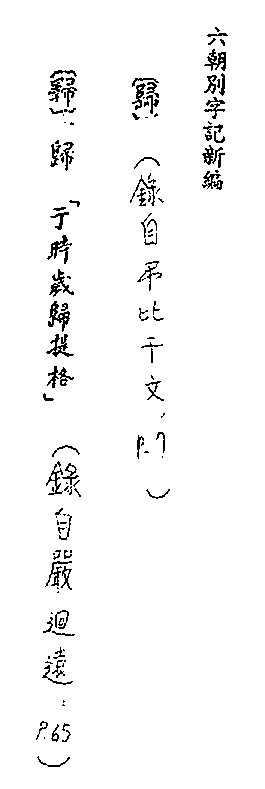 六朝別字記新編
〔歸〕（錄自吊比干文，P.7）
〔歸〕：歸「于時歲歸提格」（錄自嚴迴遠，P.65）